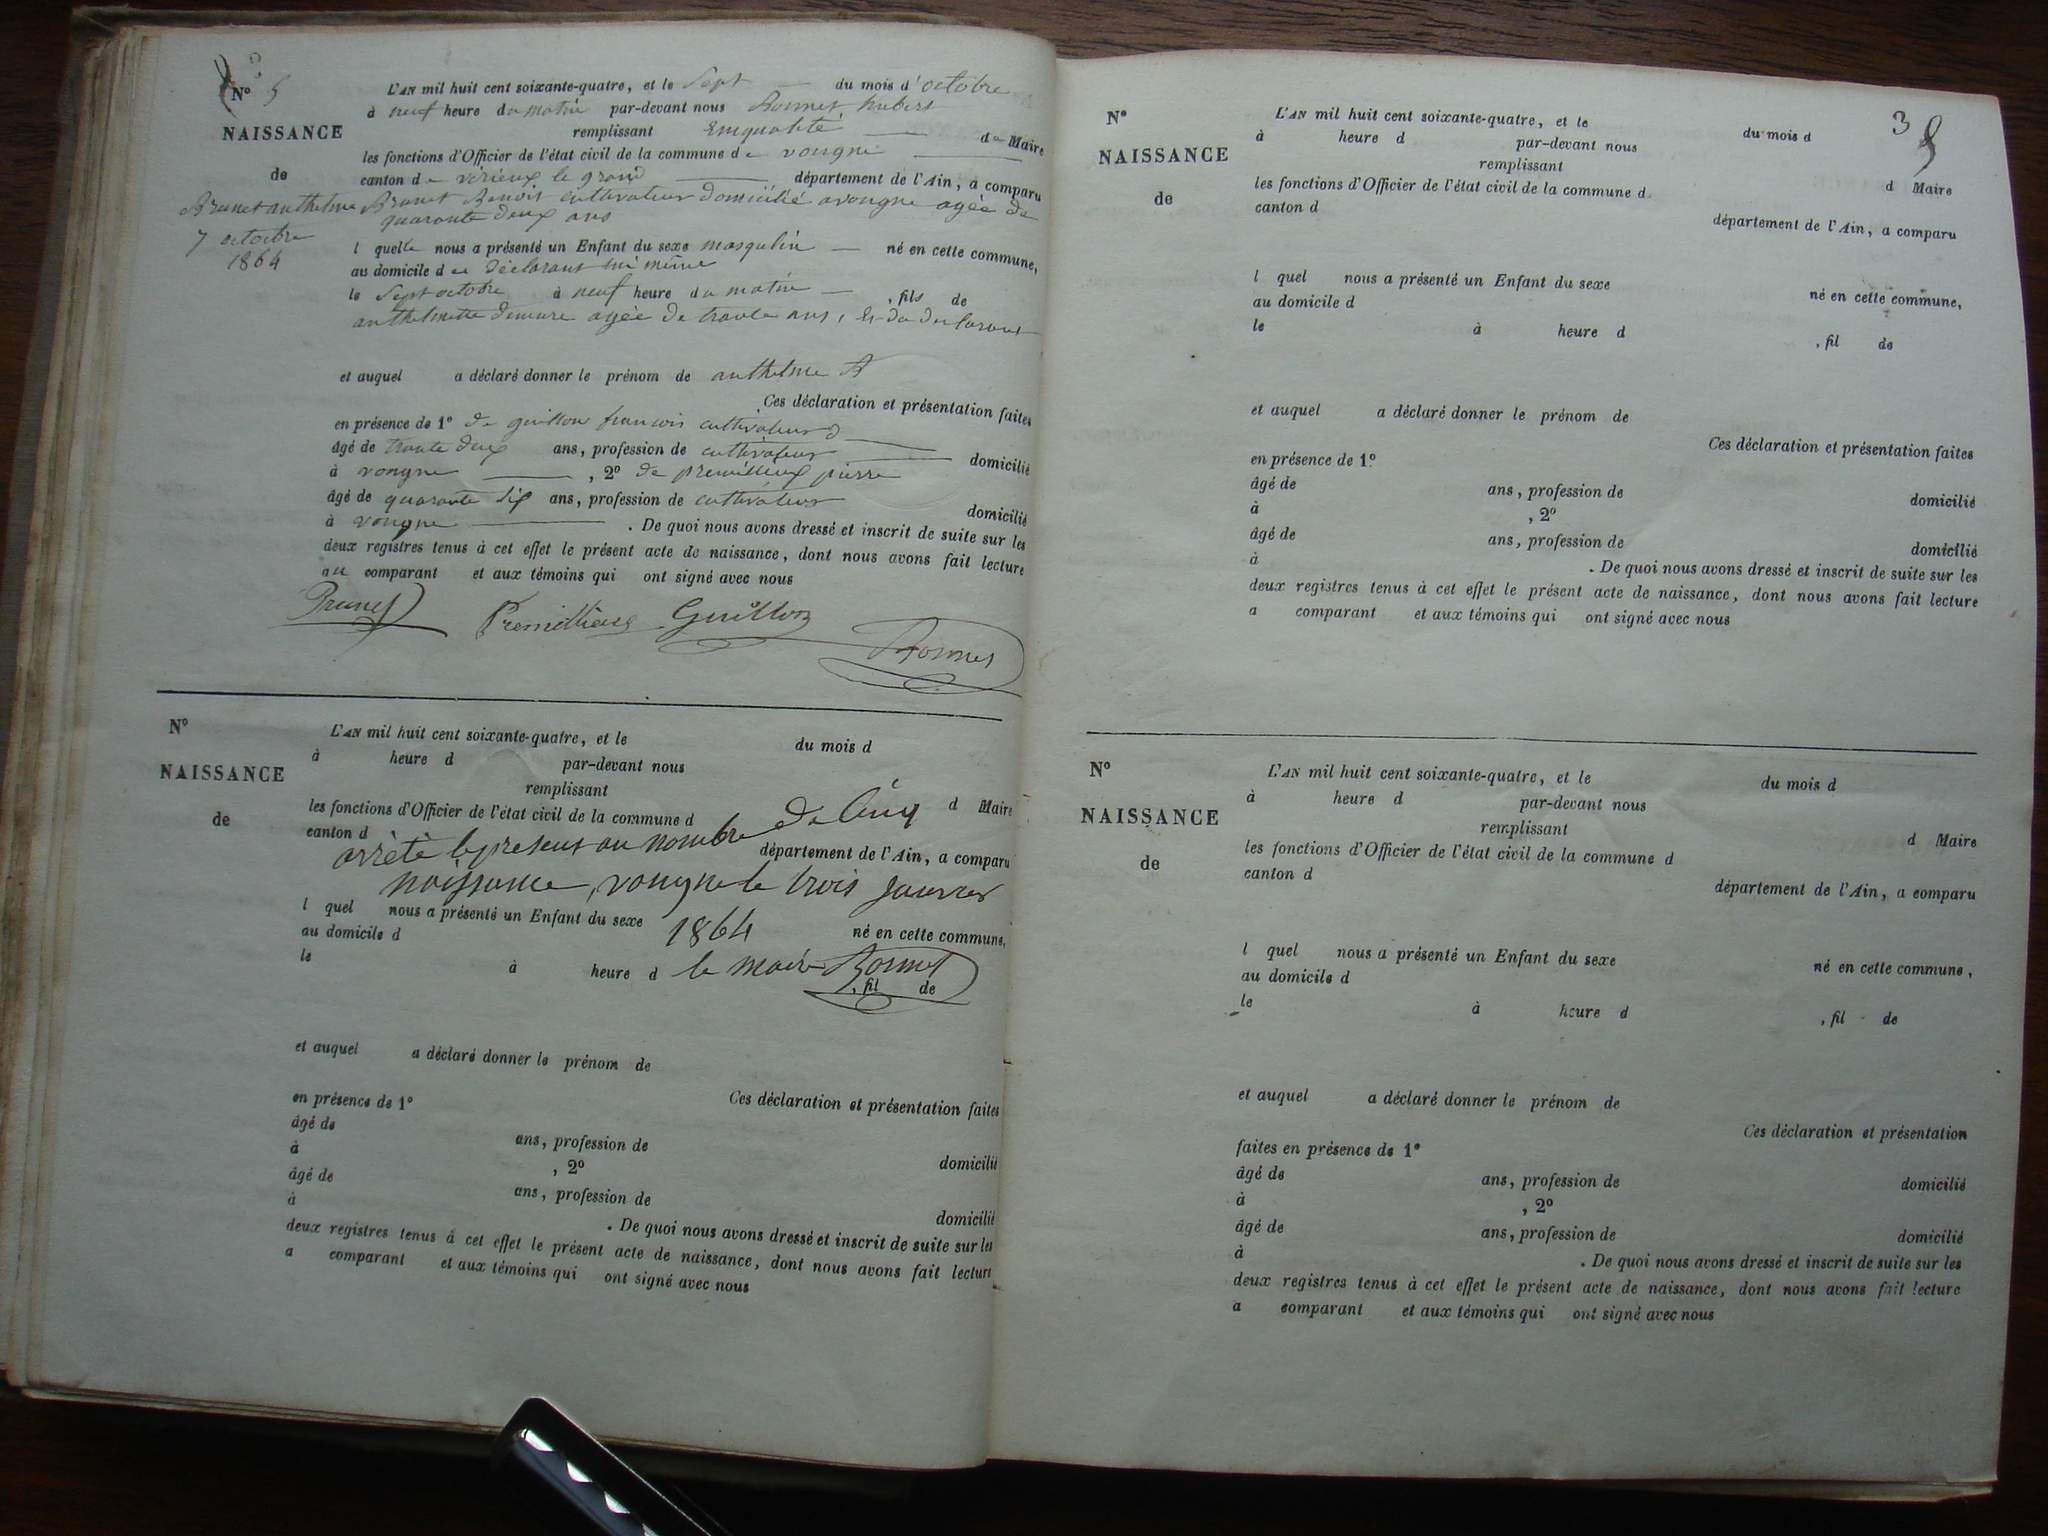 N° 5
NAISSANCE
de
Brunet anthelme
7 octobre
1864
L'AN mil huit cent soixante-quatre, et le Sept du mois d'octobre
à neuf heure du matin par-devant nous Bonnet hubert
remplissant Enqualité de Maire
les fonctions d'Officier de l'état civil de la commune de vongne
canton de virieux le grand département de l'Ain, a comparu
Brunet Benoit cultivateur domicilié avongne agée de
quarante deux ans
l quelle nous a présenté un Enfant du sexe masqulin né en cette commune,
au domicile de déclarant lui même
le Sept octobre à neuf heure du matin , fils de
anthelmette demure agée de trante ans, & du declarant
et auquel a déclaré donner le prénom de anthelme B
Ces déclaration et présentation faites
en présence de 1° de guillon francois cultivateur
âgé de trante deux ans, profession de cultivateur domicilié
à vongne , 2° de premillieux pierre
âgé de quarante six ans, profession de cultivateur domicilié
à vongne . De quoi nous avons dressé et inscrit de suite sur les
deux registres tenus à cet effet le présent acte de naissance, dont nous avons fait lecture
au comparant et aux témoins qui ont signé avec nous
Brunet Premillieux Guillon
Bonnet
N°
NAISSANCE
de
L'AN mil huit cent soixante-quatre, et le du mois d
à heure d par-devant nous
remplissant d Maire
les fonctions d'Officier de l'état civil de la commune d
canton d département de l'Ain, a comparu
arrèté le present au nombre de Cinq
naissance, vongne le trois janvier
1864
le maire Bonnet
l quel nous a présenté un Enfant du sexe né en cette commune,
au domicile d
le à heure d , fil de
et auquel a déclaré donner le prénom de
Ces déclaration et présentation faites
en présence de 1°
âgé de ans, profession de domicilié
à , 2°
âgé de ans, profession de domicilié
à . De quoi nous avons dressé et inscrit de suite sur les
deux registres tenus à cet effet le présent acte de naissance, dont nous avons fait lecture
a comparant et aux témoins qui ont signé avec nous
3
N°
NAISSANCE
de
L'AN mil huit cent soixante-quatre, et le du mois d
à heure d par-devant nous
remplissant d Maire
les fonctions d'Officier de l'état civil de la commune d
canton d département de l'Ain, a comparu
l quel nous a présenté un Enfant du sexe né en cette commune,
au domicile d
le à heure d , fil de
et auquel a déclaré donner le prénom de
Ces déclaration et présentation faites
en présence de 1°
âgé de ans, profession de domicilié
à , 2°
âgé de ans, profession de domicilié
à . De quoi nous avons dressé et inscrit de suite sur les
deux registres tenus à cet effet le présent acte de naissance, dont nous avons fait lecture
a comparant et aux témoins qui ont signé avec nous
N°
NAISSANCE
de
L'AN mil huit cent soixante-quatre, et le du mois d
à heure d par-devant nous
remplissant d Maire
les fonctions d'Officier de l'état civil de la commune d
canton d département de l'Ain, a comparu
l quel nous a présenté un Enfant du sexe né en cette commune,
au domicile d
le à heure d , fil de
et auquel a déclaré donner le prénom de
Ces déclaration et présentation
faites en présence de 1°
âgé de ans, profession de domicilié
à , 2°
âgé de ans, profession de domicilié
à . De quoi nous avons dressé et inscrit de suite sur les
deux registres tenus à cet effet le présent acte de naissance, dont nous avons fait lecture
a comparant et aux témoins qui ont signé avec nous